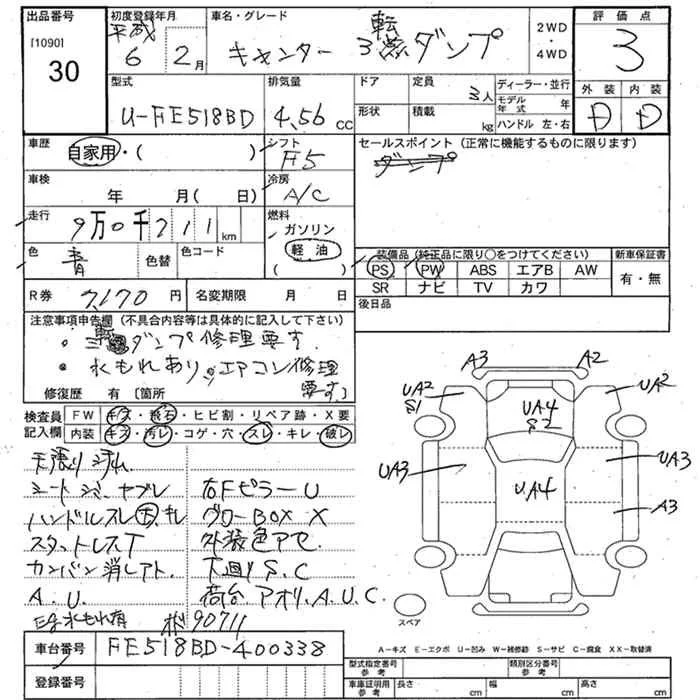 出品番号
[1090]
30
初度登録年月
平成
6 2月
車名・グレード
キャンター 3転ダンプ
2WD
・
4WD
評価点
3
外装 内装
D D
型式
U-FE518BD
排気量
4.56 cc
ドア
定員
3人
形状
積載
kg
ディーラー・並行
モデル年式 年
ハンドル 左・右
車歴
自家用・( )
シフト
F5
セールスポイント (正常に機能するものに限ります)
ダンプ
車検
年 月( 日)
冷房
A/C
走行
9万0千711km
燃料
ガソリン
軽油
( )
色
青
色替
色コード
装備品 (純正品に限り○をつけてください)
新車保証書
PS PW ABS エアB AW
SR ナビ TV カワ
有・無
R券 7170円
名変期限 月 日
後日品
注意事項申告欄 (不具合内容等は具体的に記入して下さい)
・三転ダンプ修理要す.
・水もれあり、エアコン修理
要す
修復歴 有 [箇所
検査員
記入欄
FW キズ・飛石・ヒビ割・リペア跡・X要
内装 キズ・汚レ・コゲ・穴・スレ・キレ・破レ
天張り 汚れ
シート シミ、ヤブレ
ハンドルスレ キレ
スタットレスT
カンバン消しアト.
A.U.
Eg水もれ有
右FピラーU
グローBOX X
外装色アセ.
下廻りS.C
荷台.アオリ.A.U.C.
90711
A3 A2
UA2
S1
UA4
S2
UA2
UA3
UA4
UA3
A3
スペア
A-キズ E-エクボ U-凹み W-補修跡 S-サビ C-腐食 XX-取替済
車台番号
FE518BD-400338
登録番号
型式指定番号
参考
類別区分番号
参考
車庫証明用
参考
長さ cm
幅 cm
高さ cm